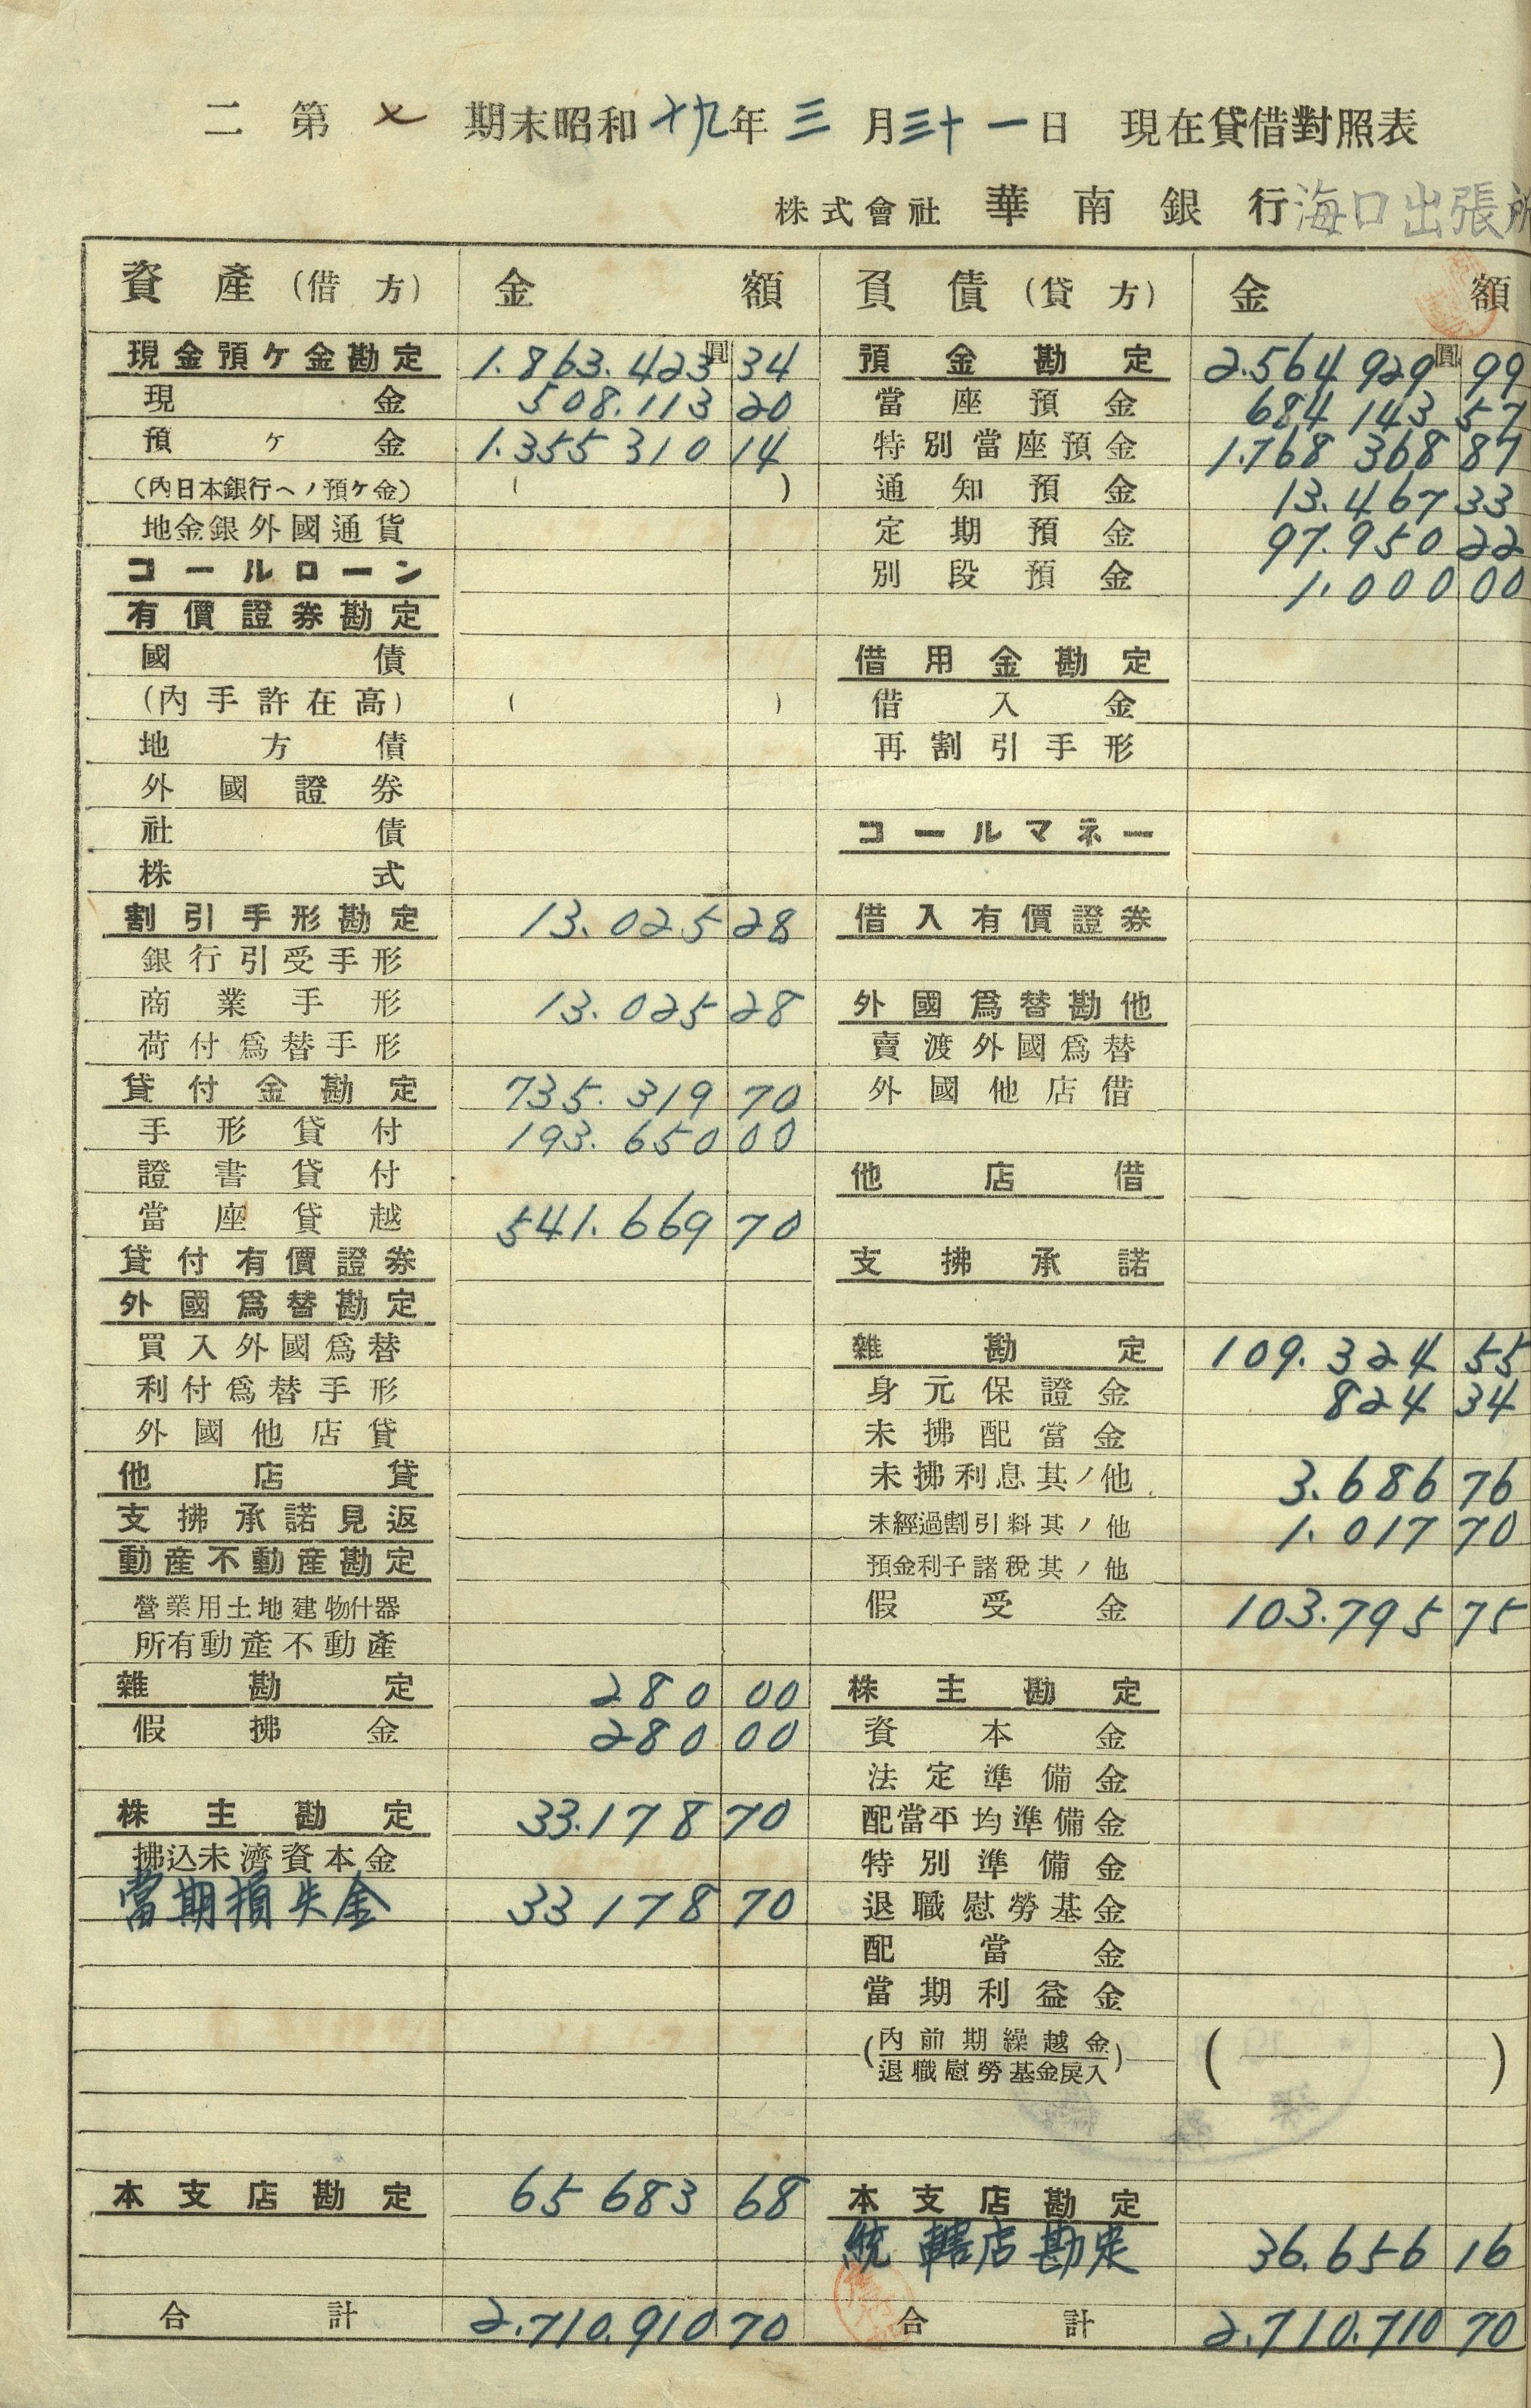 二 第 七 期末昭和 十九 年 三 月 三十一 日 現在貸借對照表
株式會社 華南銀行 海口出張所
資產(借方) 金額 負債(貸方) 金額
現金預ケ金勘定 1.863.423圓34 預金勘定 2.564 929圓99
現金 508.113 20 當座預金 684 143 57
預ケ金 1.355 310 14 特別當座預金 1.768 368 87
(內日本銀行ヘノ預ケ金) ( ) 通知預金 13.467 33
地金銀外國通貨 定期預金 97.950 22
コールローン 別段預金 1.000 00
有價證券勘定
國債 借用金勘定
(內手許在高) ( ) 借入金
地方債 再割引手形
外國證券
社債 コールマネー
株式
割引手形勘定 13.025 28 借入有價證券
銀行引受手形
商業手形 13.025 28 外國爲替勘他
荷付爲替手形 賣渡外國爲替
貸付金勘定 735.319 70 外國他店借
手形貸付 193.650 00
證書貸付 他店借
當座貸越 541.669 70
貸付有價證券 支拂承諾
外國爲替勘定
買入外國爲替 雜勘定 109.324 55
利付爲替手形 身元保證金 824 34
外國他店貸 未拂配當金
他店貸 未拂利息其ノ他 3.686 76
支拂承諾見返 未經過割引料其ノ他 1.017 70
動產不動產勘定 預金利子諸稅其ノ他
營業用土地建物什器 假受金 103.795 75
所有動產不動產
雜勘定 280 00 株主勘定
假拂金 280 00 資本金
法定準備金
株主勘定 33.178 70 配當平均準備金
拂込未濟資本金 特別準備金
當期損失金 33 178 70 退職慰勞基金
配當金
當期利益金
(內前期繰越金 退職慰勞基金戾入) ( )
本支店勘定 65 683 68 本支店勘定
統轄店勘定 36.656 16
合計 2.710.910 70 合計 2.710.710 70